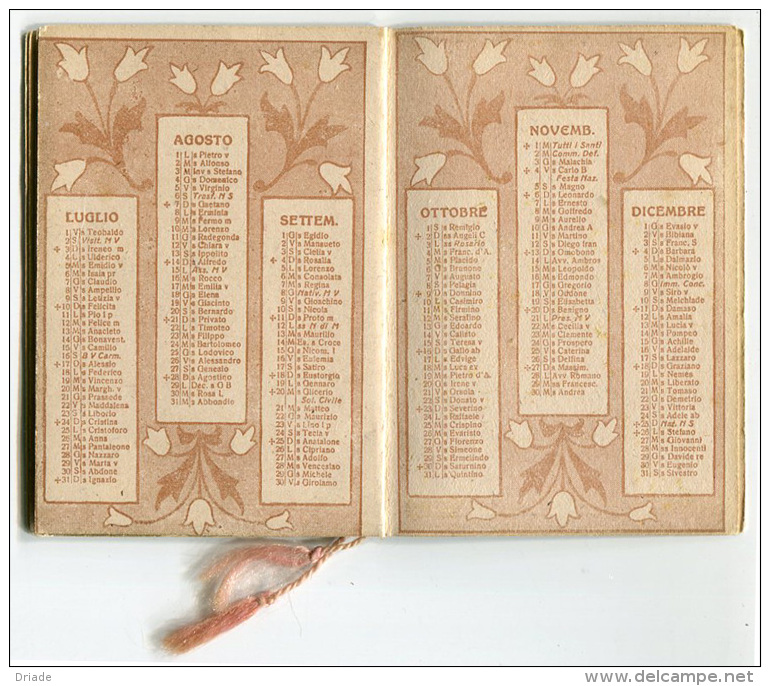 LUGLIO
1 V s Teobaldo
2 S Visit. M V
3 D s Ireneo m
4 L s Ulderico
5 M s Emidio v
6 M s Isaia pr
7 G s Claudio
8 V s Ampellio
9 S s Letizia v
10 D s Felicita
11 L s Pio I p
12 M s Felice m
13 M s Anacleto
14 G s Bonavent.
15 V s Camillo
16 S B V Carm.
17 D s Alessio
18 L s Federico
19 M s Vincenzo
20 M s Margh. v
21 G s Prassede
22 V s Maddalena
23 S s Liborio
24 D s Cristina
25 L s Cristoforo
26 M s Anna
27 M s Pantaleone
28 G s Nazzaro
29 V s Marta v
30 S s Abdone
31 D s Ignazio
AGOSTO
1 L s Pietro v
2 M s Alfonso
3 M Inv s Stefano
4 G s Domenico
5 V s Virginio
6 S Trasf. N S
7 D s Gaetano
8 L s Erminia
9 M s Fermo m
10 M s Lorenzo
11 G s Radegonda
12 V s Chiara v
13 S s Ippolito
14 D s Alfredo
15 L Ass. M V
16 M s Rocco
17 M s Emilia v
18 G s Elena
19 V s Giacinto
20 S s Bernardo
21 D s Privato
22 L s Timoteo
23 M s Filippo
24 M s Bartolomeo
25 G s Lodovico
26 V s Alessandro
27 S s Genesio
28 D s Agostino
29 L Dec. s G B
30 M s Rosa L
31 M s Abbondio
SETTEM.
1 G s Egidio
2 V s Mansueto
3 S s Clelia v
4 D s Rosalia
5 L s Lorenzo
6 M s Consolata
7 M s Regina
8 G Nativ. M V
9 V s Gioachino
10 S s Nicola
11 D s Proto m
12 L ss N di M
13 M s Maurilio
14 M Es. s Croce
15 G s Nicom. I
16 V s Eufemia
17 S s Satiro
18 D s Eustorgio
19 L s Gennaro
20 M s Glicerio
Sol. Civile
21 M s Matteo
22 G s Maurizio
23 V s Lino I p
24 S s Tecla v
25 D s Anatalone
26 L s Cipriano
27 M s Adolfo
28 M s Venceslao
29 G s Michele
30 V s Girolamo
OTTOBRE
1 S s Remigio
2 D ss Angeli C
3 L ss Rosario
4 M s Franc. d'A.
5 M s Placido
6 G s Brunone
7 V s Augusto
8 S s Pelagia
9 D s Donnino
10 L s Casimiro
11 M s Firmino
12 M s Serafino
13 G s Edoardo
14 V s Calisto
15 S s Teresa v
16 D s Gallo ab
17 L s Edvige
18 M s Luca ev
19 M s Pietro d'A.
20 G s Irene v
21 V s Orsola
22 S s Donato v
23 D s Severino
24 L s Raffaele
25 M s Crispino
26 M s Evaristo
27 G s Fiorenzo
28 V s Simeone
29 S s Ermelindo
30 D s Saturnino
31 L s Quintino
NOVEMB.
1 M Tutti i Santi
2 M Comm. Def.
3 G s Malachia
4 V s Carlo B
Festa Naz.
5 S s Magno
6 D s Leonardo
7 L s Ernesto
8 M s Goffredo
9 M s Aurelio
10 G s Andrea A
11 V s Martino
12 S s Diego fran
13 D s Omobono
14 L Avv. Ambros
15 M s Leopoldo
16 M s Edmondo
17 G s Gregorio
18 V s Oddone
19 S s Elisabetta
20 D s Benigno
21 L Pres. M V
22 M s Cecilia v
23 M s Clemente
24 G s Prospero
25 V s Caterina
26 S s Delfina
27 D s Massim.
28 L Avv Romano
29 M ss Francesc.
30 M s Andrea
DICEMBRE
1 G s Evasio v
2 V s Bibiana
3 S s Franc. S
4 D s Barbara
5 L s Dalmazio
6 M s Nicolò v
7 M s Ambrogio
8 G Imm. Conc
9 V s Siro v
10 S s Melchiade
11 D s Damaso
12 L s Amalia
13 M s Lucia v
14 M s Pompeo
15 G s Achille
16 V s Adelaide
17 S s Lazzaro
18 D s Graziano
19 L s Nemes
20 M s Liberato
21 M s Tomaso
22 G s Demetrio
23 V s Vittoria
24 S s Adele ab
25 D Nat. N S
26 L s Stefano
27 M s Giovanni
28 M ss Innocenti
29 G s Davide re
30 V s Eugenio
31 S s Silvestro
Driade
www.delcampe.net